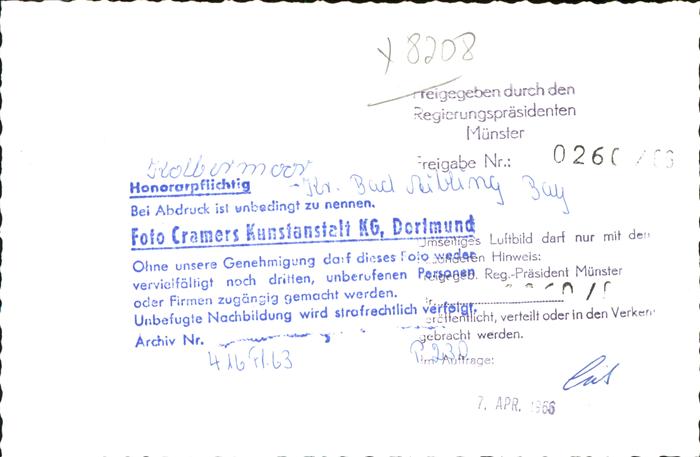 x 8208
Freigegeben durch den
Regierungspräsidenten
Münster
Freigabe Nr.: 0260
Kolbermoor
Honorarpflichtig - Kr. Bad Aibling Bay
Bei Abdruck ist unbedingt zu nennen.
Foto Cramers Kunstanstalt KG, Dortmund
Ohne unsere Genehmigung darf dieses Foto weder
vervielfältigt noch dritten, unberufenen Personen
oder Firmen zugängig gemacht werden.
Unbefugte Nachbildung wird strafrechtlich verfolgt.
Archiv Nr.
416 Fl. 63
P 230
Umseitiges Luftbild darf nur mit dem
besonderen Hinweis:
Freigeg. Reg.-Präsident Münster
Nr.
veröffentlicht, verteilt oder in den Verkehr
gebracht werden.
Im Auftrage:
7. APR. 1966